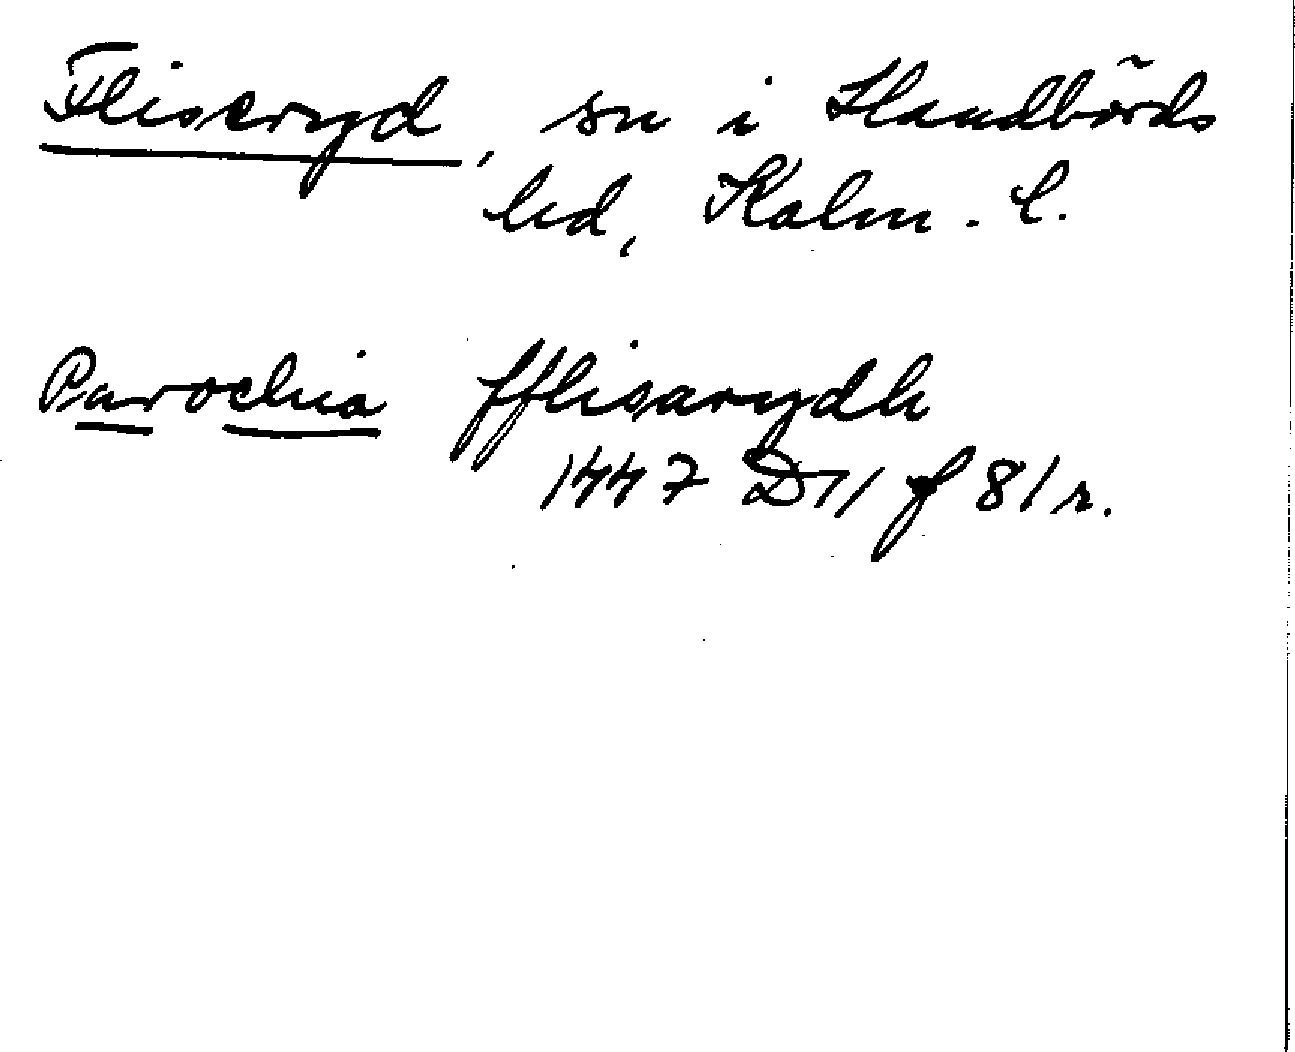 Fliseryd, sn i Handbörds
hd, Kalm. l.
Parochia fflisarydh
1447 D11 f 81 r.